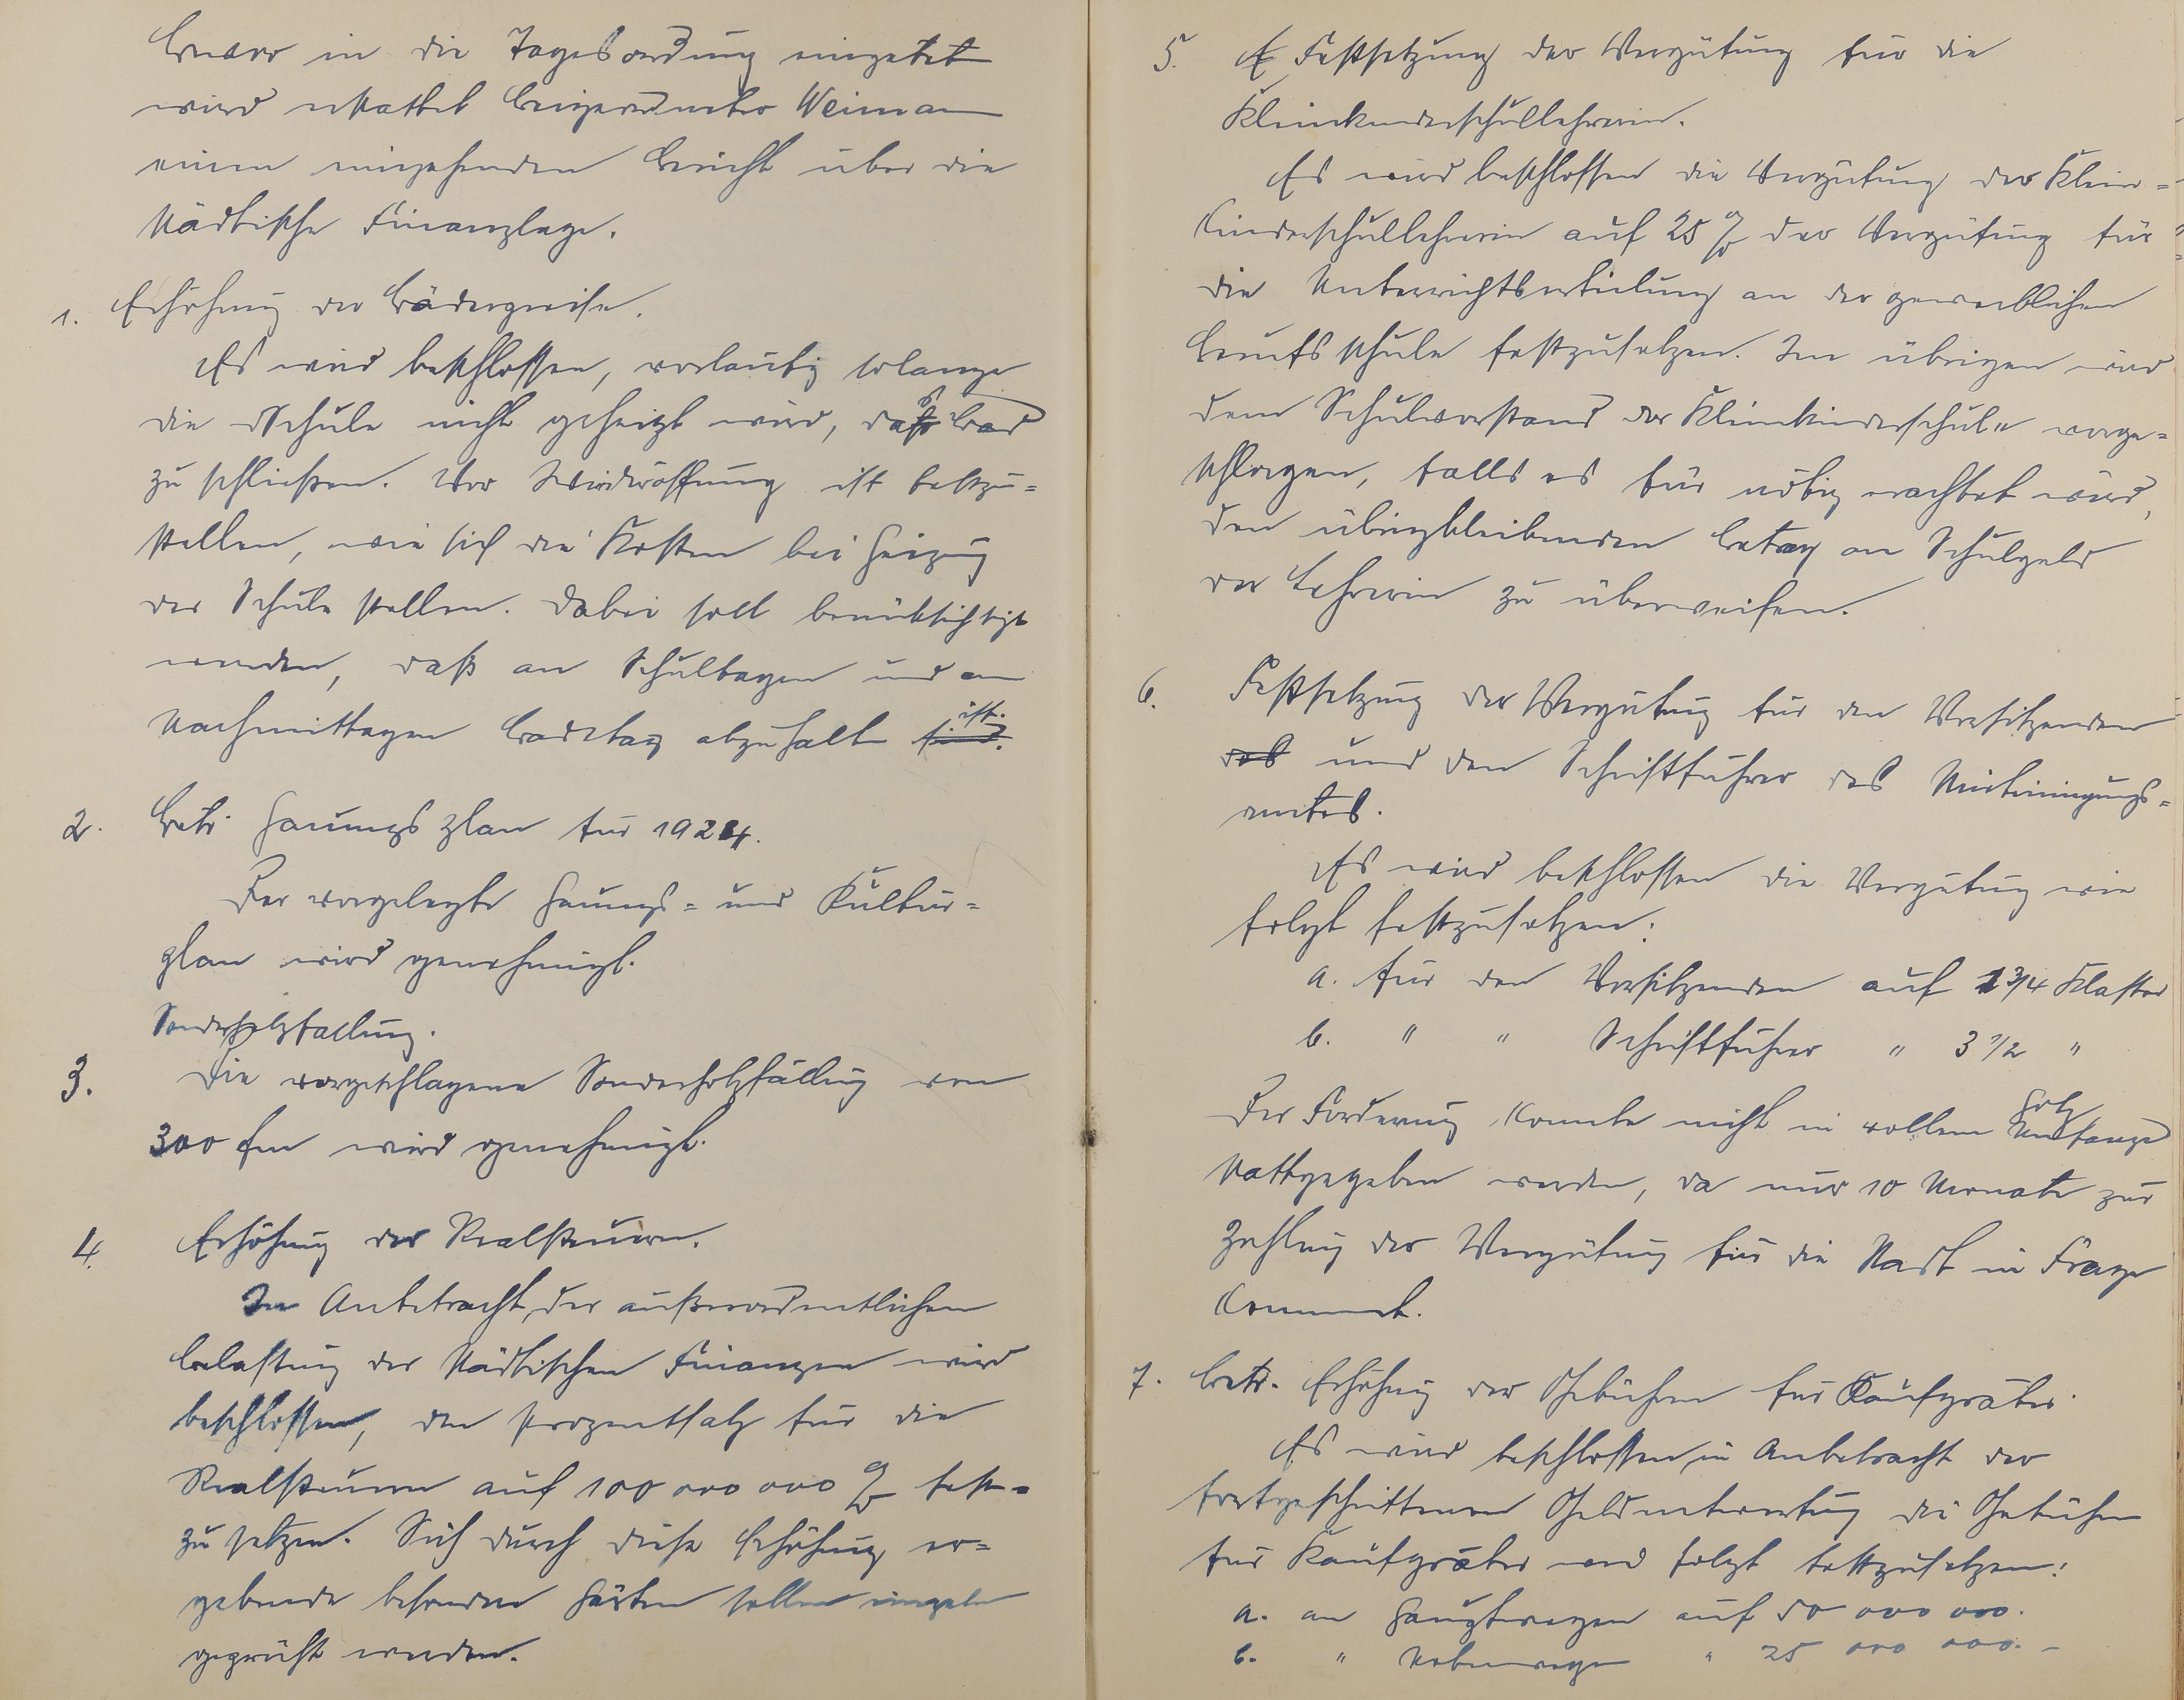 Bevor in die Tagesordnung eingetret
wird erstattet Beigeordneter Weiman
einen eingehenden Bericht über die
städtische Finanzlage.
1. Erhöhung der Bäderpreise.
Es wird beschlossen, vorläufig solange
die Schule nicht geheizt wird, das Bad
zu schließen. Vor Wiedereröffnung ist festzu=
stellen, wie sich die Kosten bei Heizung
der Schule stellen. Dabei soll berücksichtigt
werden, daß an Schultagen und an
Nachmittagen Badetag abzuhalt sind. ist.
2. Betr. Hauungsplan für 1924.
Der vorgelegte Hauungs= und Kultur=
plan wird genehmigt.
Sonderholzfällung.
3. Die vorgeschlagene Sonderholzfällung von
300 fm wird genehmigt.
4. Erhöhung der Realsteuern.
In Anbetracht der außerordentlichen
Belastung der städtischen Finanzen wird
beschlossen, den Prozentsatz für die
Realsteuern auf 100 000 000 % fest=
zu setzen. Sich durch diese Erhöhung er=
gebende besondere Härten sollen einzeln
geprüft werden.
5. Festsetzung der Vergütung für die
Kleinkinderschullehrerin.
Es wird beschlossen die Vergütung der Klein=
kinderschullehrerin auf 25 % der Vergütung für
die Unterrichtserteilung an der gewerblichen
Berufsschule festzusetzen. Im übrigen wird
dem Schulvorstand der Kleinkinderschule vorge=
schlagen, falls es für nötig erachtet wird,
den übrigbleibenden Betrag an Schulgeld
der Lehrerin zu überweisen.
6. Festsetzung der Vergütung für den Vorsitzenden
des und den Schriftführer des Mieteinigungs=
amtes.
Es wird beschlossen die Vergütung wie
folgt festzusetzen:
a. für den Vorsitzenden auf 1 3/4 Klafter
b. " " Schriftführer " 3 1/2 " Holz
Der Forderung konnte nicht in vollem Umfange
stattgegeben werden, da nur 10 Monate zur
Zahlung der Vergütung für die Stadt in Frage
kommt.
7. Betr. Erhöhung der Gebühren für Kaufgräber.
Es wird beschlossen, in Anbetracht der
fortgeschrittenen Geldentwertung die Gebühren
für Kaufgräber wie folgt festzusetzen:
a. an Hauptwegen auf 50 000 000.
b. " Nebenwegen " 25 000 000. -